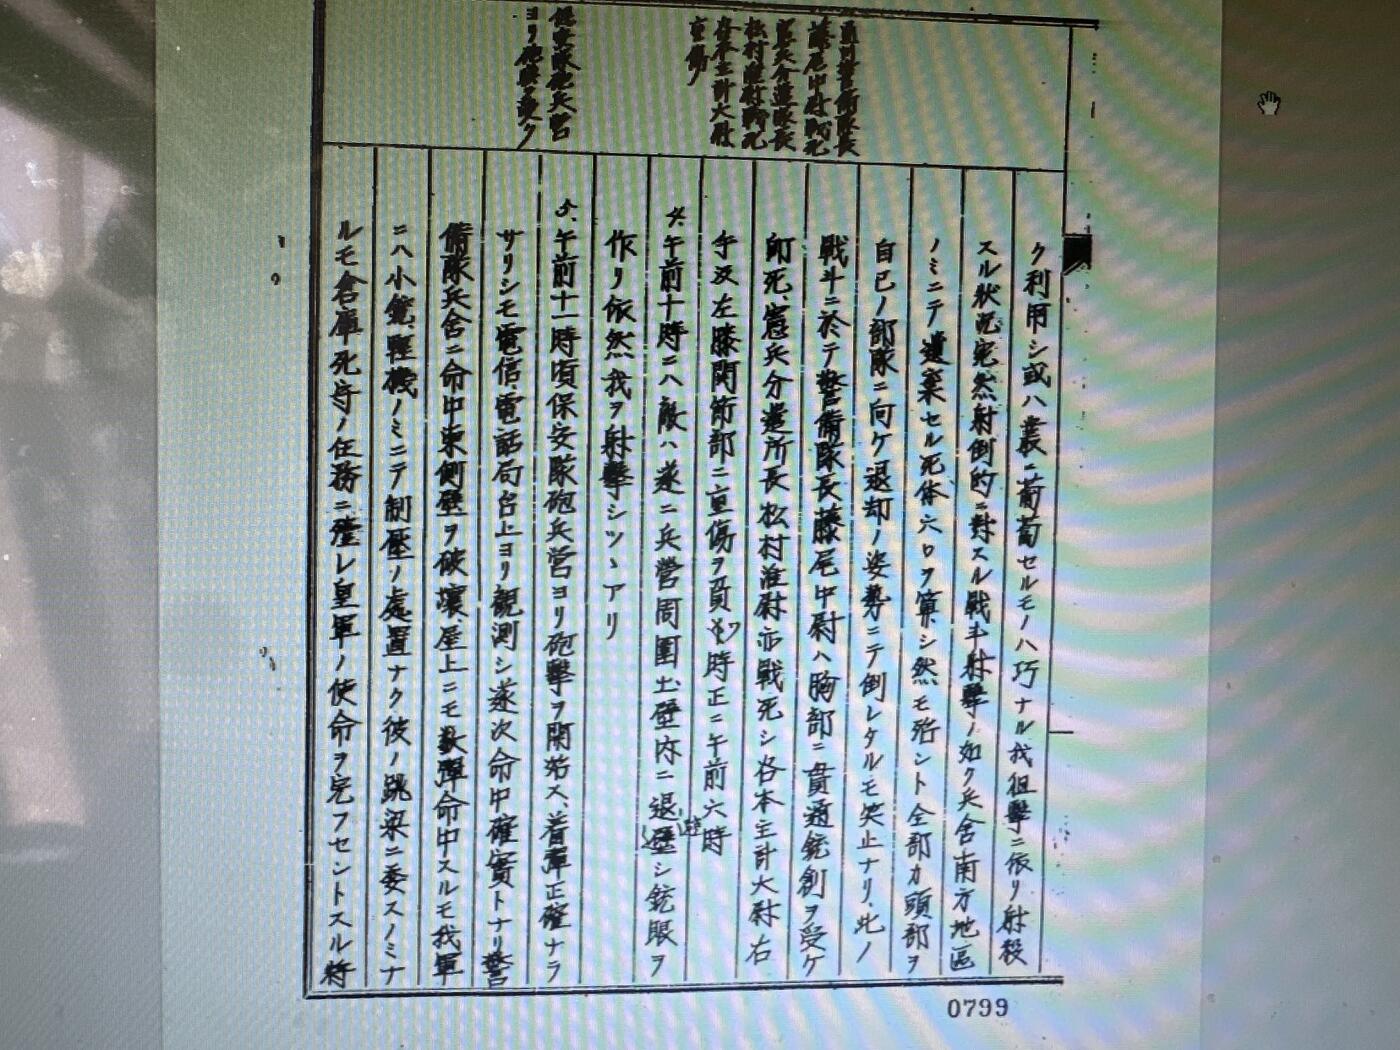 通州警備隊長
藤尾中尉戦死
憲兵分遣隊長
松村准尉戦死
各本主計大尉
重傷ク
保安隊砲兵営
ヨリ砲撃ヲ受ク
ク利用シ或ハ叢ニ葡萄セルモノハ巧ナル我狙撃ニ依リ射殺
スル状況宛然射倒的ニ対スル戦斗射撃ノ如ク兵舎南方地區
ノミニテ遺棄セル死体六口ヲ算シ然モ殆ント全部カ頭部ヲ
自己ノ部隊ニ向ケ退却ノ姿勢ニテ倒レタルモ笑止ナリ、此ノ
戦斗ニ於テ警備隊長藤尾中尉ハ胸部ニ貫通銃創ヲ受ケ
即死、憲兵分遣所長松村准尉亦戦死シ各本主計大尉右
手及左膝関節部ニ重傷ヲ負フ時正ニ午前六時
4、午前十時ニハ敵ハ遂ニ兵営周囲土壁内ニ退シ銃眼ヲ
作リ依然我ヲ射撃シツヽアリ
5、午前十一時頃保安隊砲兵営ヨリ砲撃ヲ開始ス、着弾正確ナラ
サリシモ電信電話局台上ヨリ観測シ逐次命中確實トナリ警
備隊兵舎ニ命中東側壁ヲ破壊、屋上ニモ数弾命中スルモ我軍
ニハ小銃、軽機ノミニテ制圧ノ處置ナク彼ノ跳梁ニ委スノミナ
ルモ倉庫死守ノ任務ニ殪レ皇軍ノ使命ヲ完フセントスル将
0799